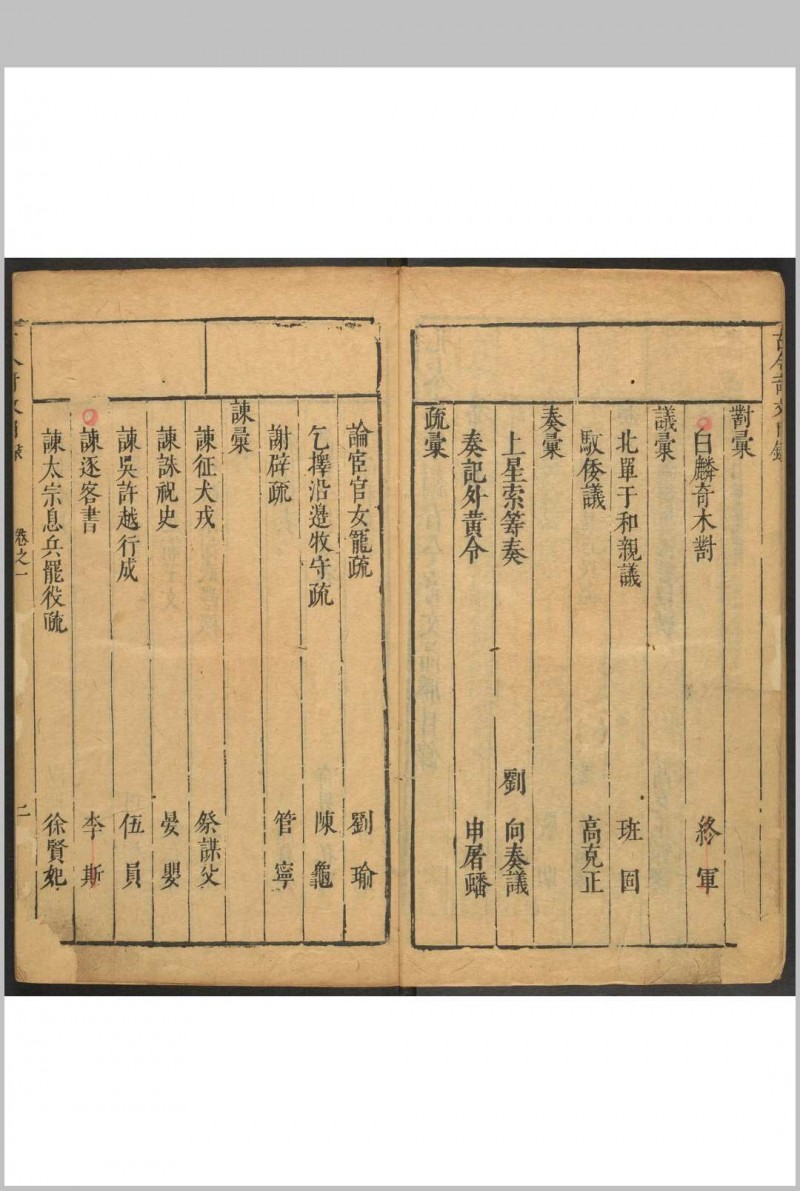 對彙
白麟奇木對 終軍
議彙
北單于和親議 班固
馭倭議 高克正
奏彙
上星索等奏 劉向奏議
奏記外黃令 申屠蟠
疏彙
論宦官女寵疏 劉瑜
乞擇沿邊牧守疏 陳龜
謝辟疏 管寧
諫彙
諫征犬戎 祭謀父
諫誅祝史 晏嬰
諫吳許越行成 伍員
諫逐客書 李斯
諫太宗息兵罷役疏 徐賢妃
卷之一
二